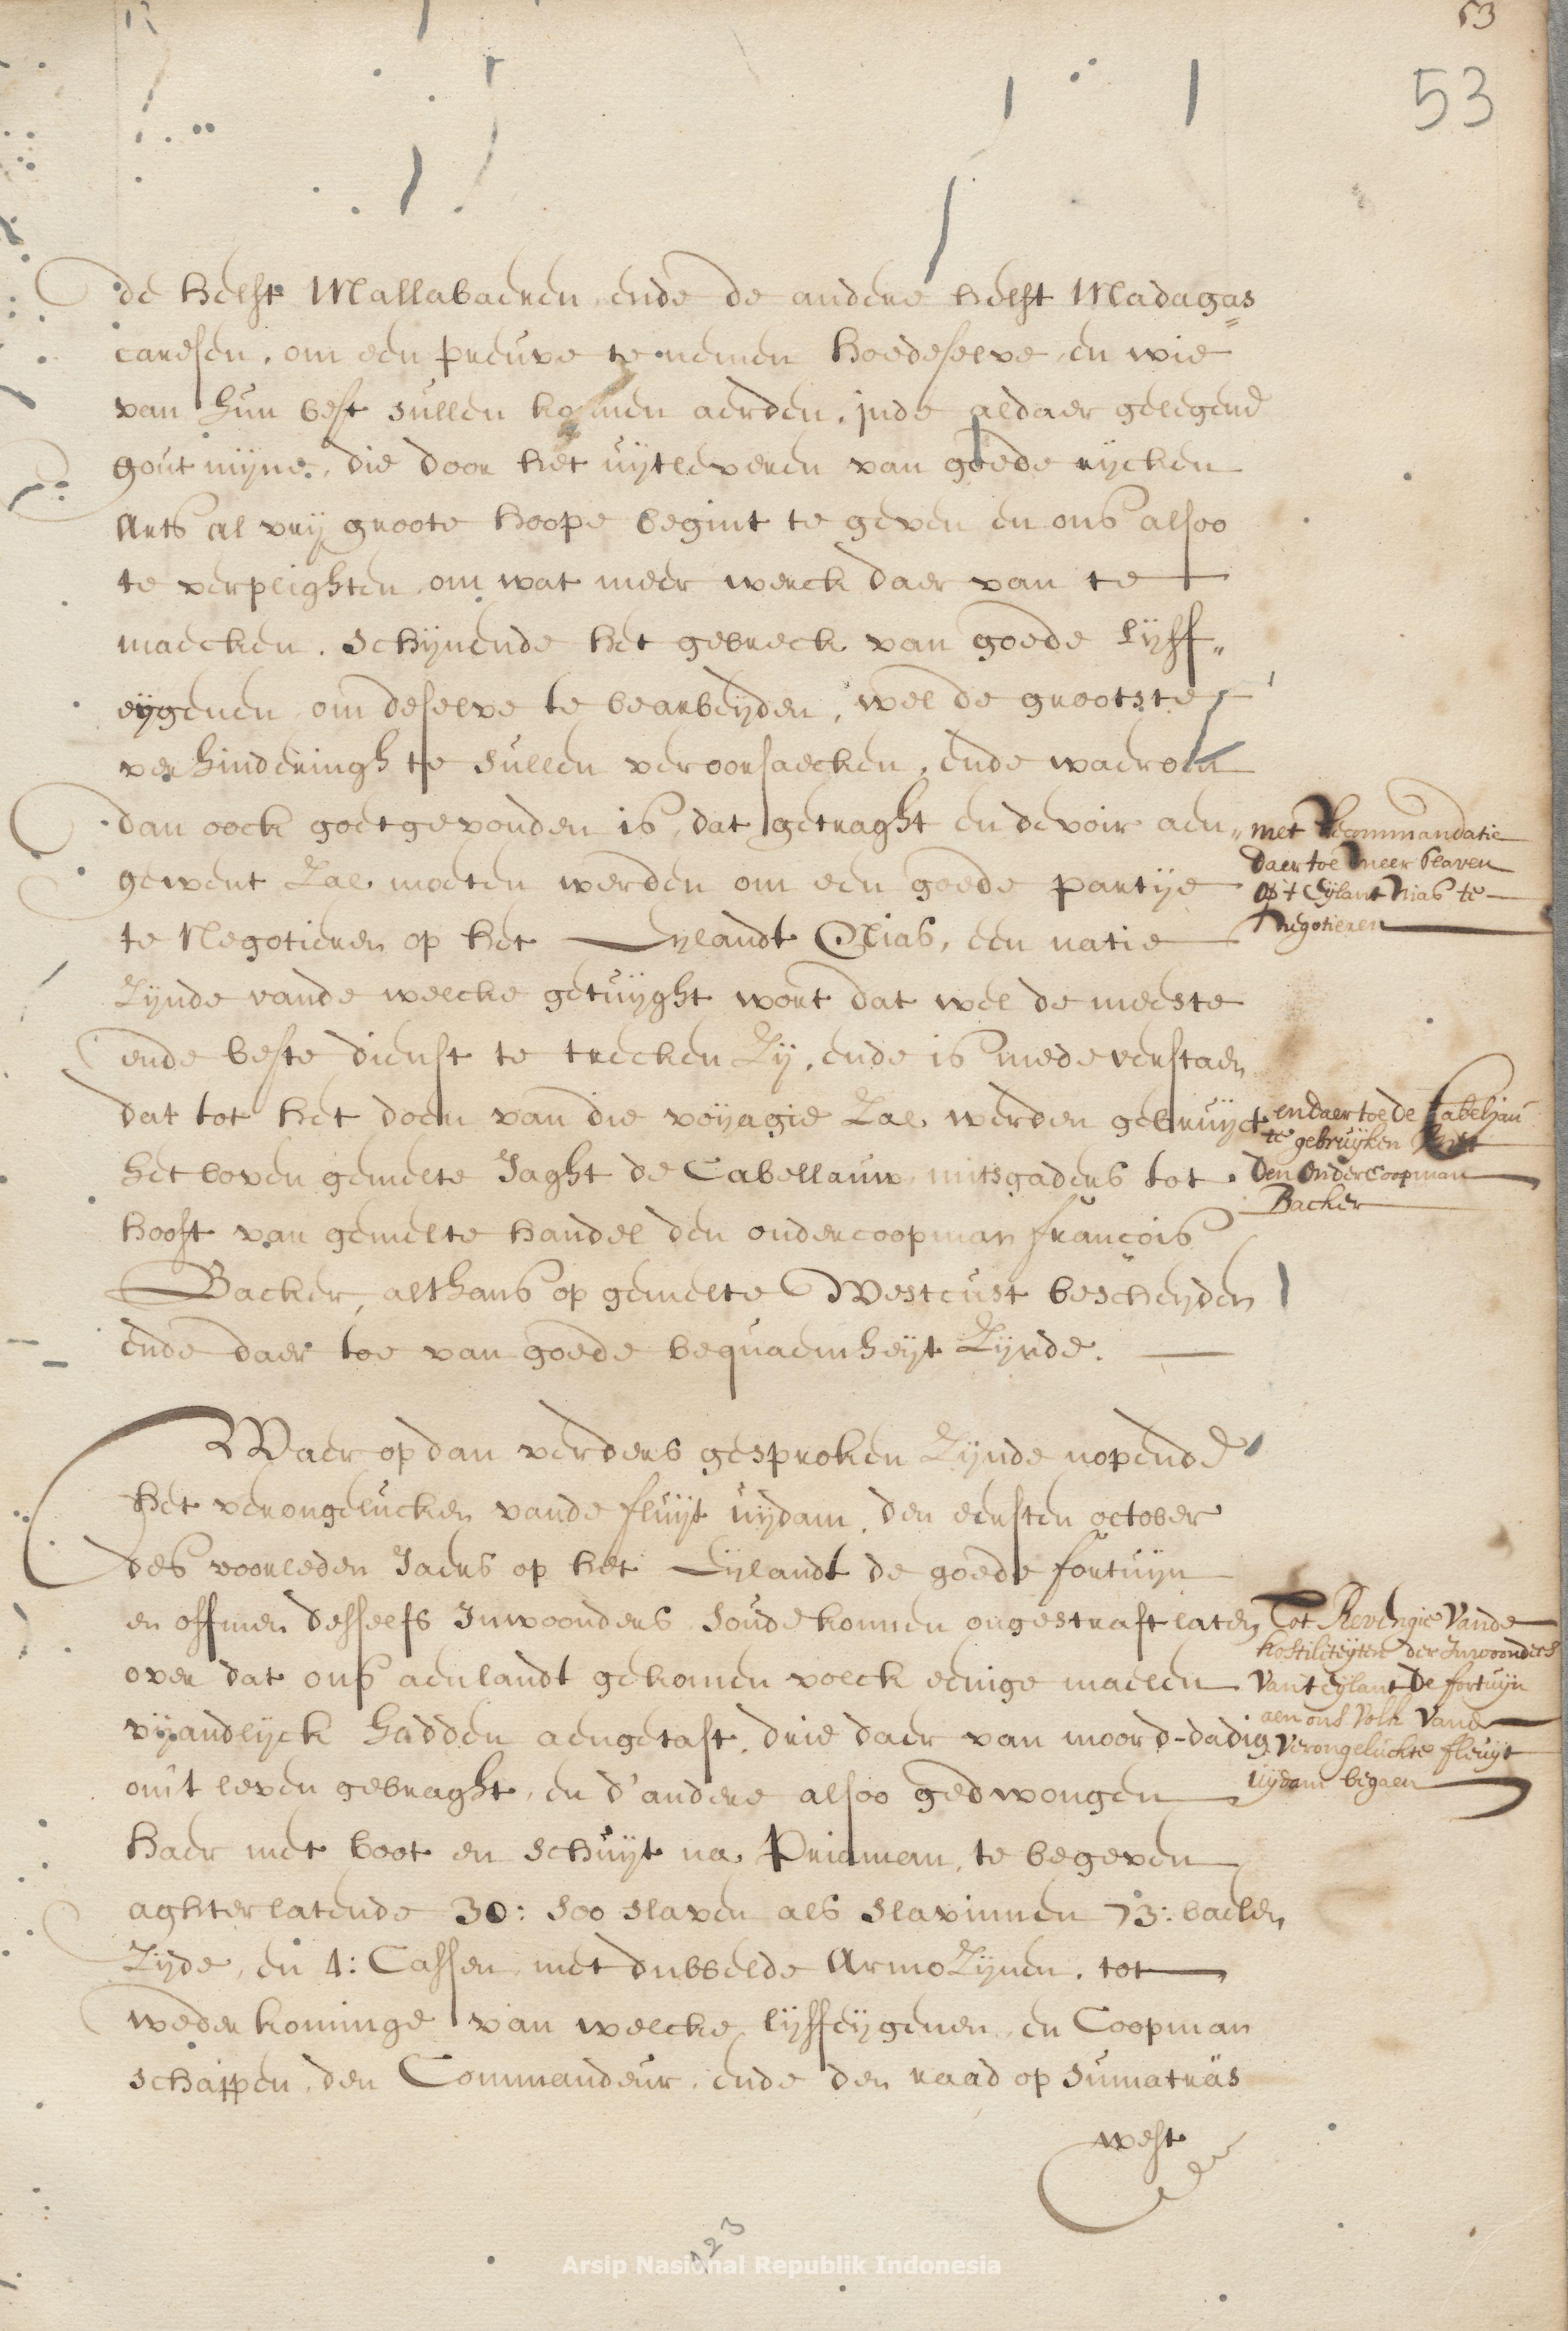 53
53
de helft Mallabaeren ende de andere helft Madagas=
caresen, om een preuve te nemen hoedeselve en wie
van hun best sullen komen aerden, inde aldaer gelegene
gout mijne, die door het uijtleveren van goede rijcken
Arts al vrij groote hoope begint te geven en ons alsoo
te verplighten om wat meer werck daer van te
maecken. schijnende het gebreck van goede lijff„
eijgenen om deselve te bearbeijden, wel de grootste
verhinderingh te sullen veroorsaecken, ende waerom
dan oock goetgevonden is, dat getraght en devoir aen„
gewent zal moeten werden om een goede partije
te Negotieren op het Eylandt Nias, een natie
zijnde vande welcke getuijght wort dat wel de meeste
ende beste dienst te trecken zij, ende is mede verstaen
dat tot het doen van die voijagie zal werden gebruijct
het boven gemelte Jaght de Cabellauw, mitsgaders tot
hooft van gemelte handel den ondercoopman françois
Backer, althans op gemelte Westcust bescheijden
ende daer toe van goede bequaemheijt zijnde.
met Recommandatie
daer toe meer slaven
op 't Eijlant Nias te
negotieren
en daer toe de Cabeljau
te gebruijken met
den ondercoopman
Backer
Waer op dan verders gesproken zijnde nopende
het verongelucken vande fluijt uijdam, den eersten october
des voorleden Jaers op het Eijlandt de goede fortuijn
en offmen desselfs Inwoonders soude konnen ongestraft laten
over dat ons aenlandt gekomen volck eenige maelen
vijandlijck hadden aengetast, drie daer van moord-dadig
om't leven gebraght, en d'andere alsoo gedwongen
haer met boot en schuijt na Priaman te begeven
aghterlatende 30: soo slaven als slavinnen 73: baelen
Zijde, en 4: Cassen met dubbelde Armozijnen. tot
wederkominge van welcke lijffeijgenen en Coopman
schappen, den Commandeur, ende den raad op sumatras
west
Tot Revengie vande
hostiliteijten der Inwoonders
van 't eijlant de fortuijn
aen ons volk vande
verongeluckte fleuijt
uijdam begaen
123
Arsip Nasional Republik Indonesia